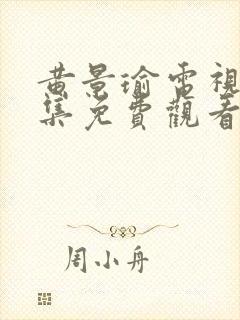 黄景瑜電視
集免費觀看
周小舟